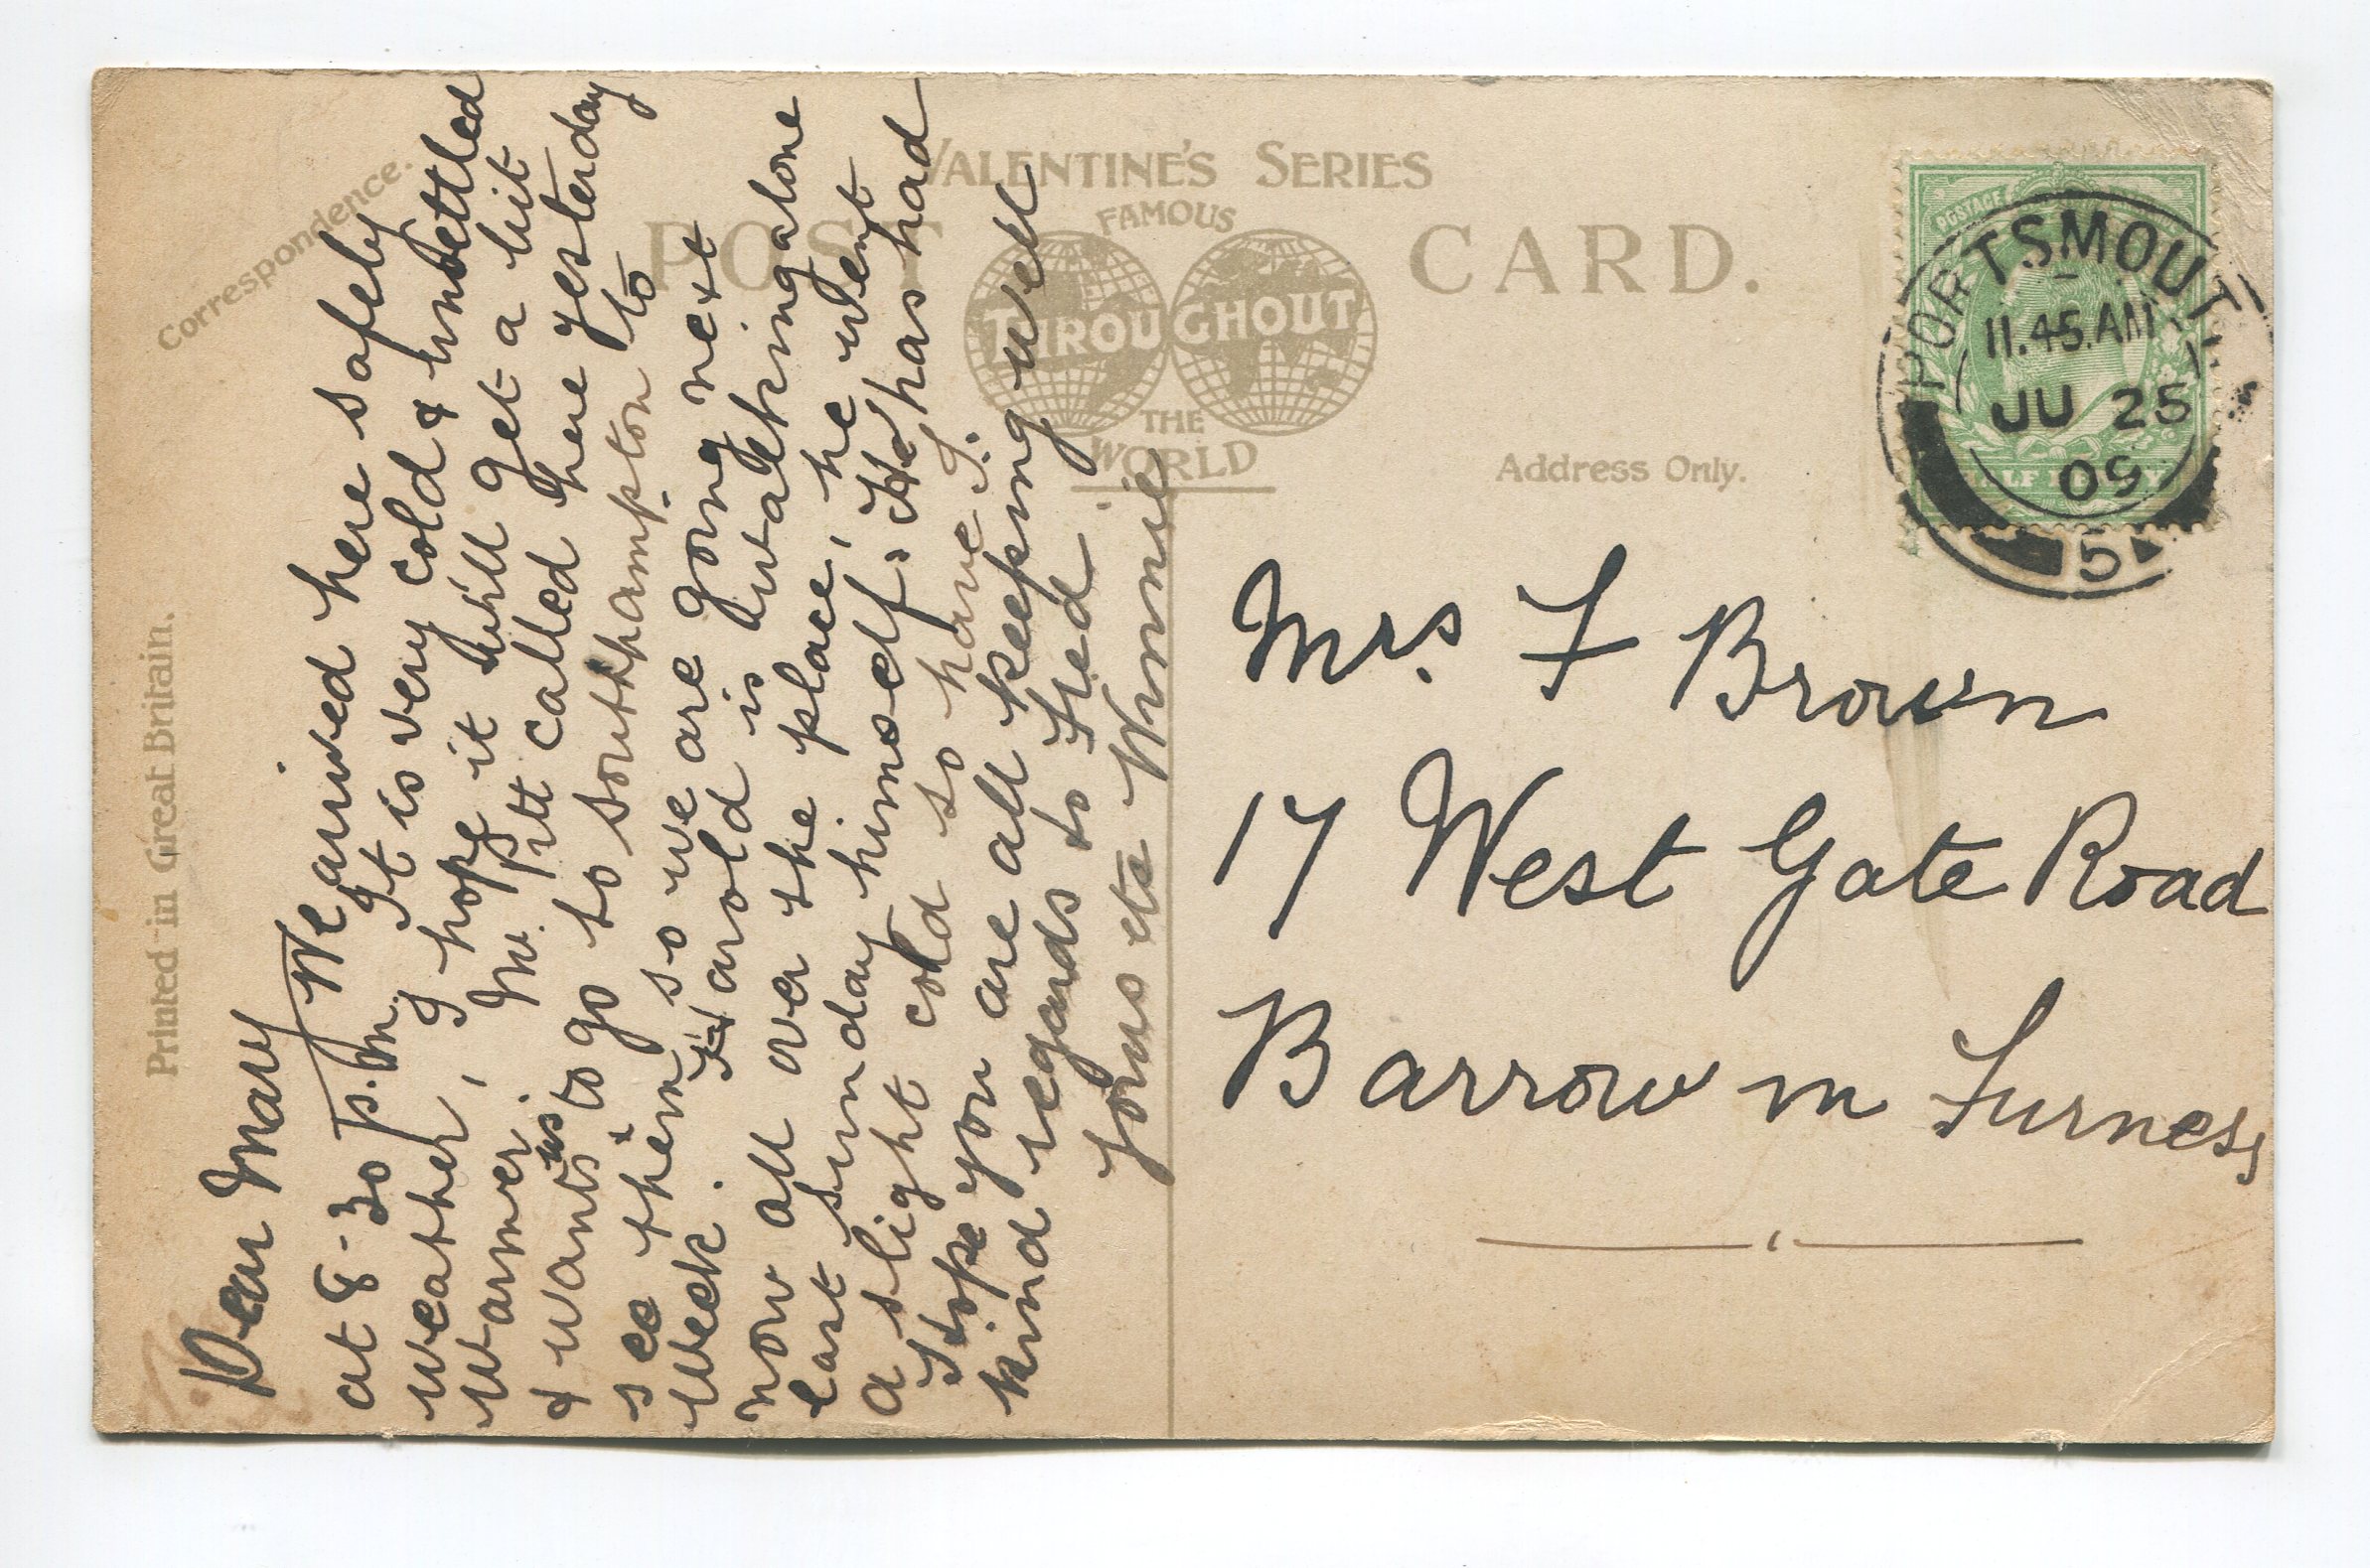 Correspondence.
Printed in Great Britain.
VALENTINE'S SERIES
POST CARD.
FAMOUS
THROUGHOUT
THE
WORLD
Address Only.
POSTAGE
HALF PENNY
PORTSMOUTH
11.45.AM
JU 25
09
5
Dear Mary
We arrived here safely
at 8-30 p.m. It is very cold & unsettled
weather, I hope it will get a bit
warmer. Mr. Pitt called here yesterday
& wants us to go to Southampton to
see them, so we are going next
Week. Harold is walking alone
now all over the place, he went
last Sunday himself. He has had
a slight cold so have I.
Hope you are all keeping well
kind regards to Fred
yours etc Winnie
Mrs F Brown
17 West Gate Road
Barrow in Furness